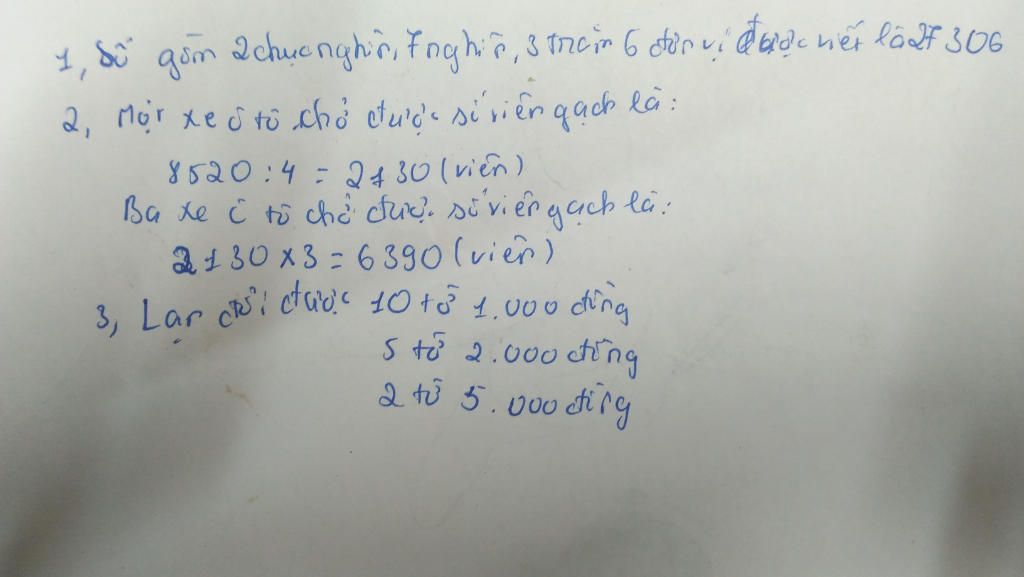 1, Số gồm 2 chục nghìn, 7 nghìn, 3 trăm 6 đơn vị được viết là 27 306
2, Một xe ô tô chở được số viên gạch là:
8520 : 4 = 2130 (viên)
Ba xe ô tô chở được số viên gạch là:
2130 x 3 = 6390 (viên)
3, Lan đổi được 10 tờ 1.000 đồng
5 tờ 2.000 đồng
2 tờ 5.000 đồng